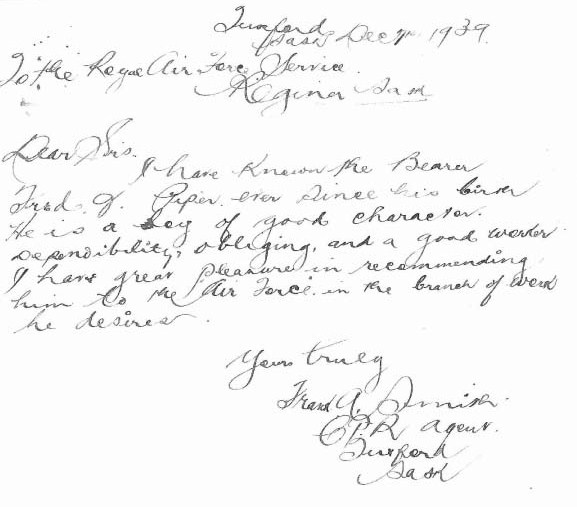 Tuxford
Sask Dec 1939
To the Royal Air Force Service
Regina Sask
Dear Sirs.
I have Known the Bearer
Fred. D. Piper ever since his birth
He is a boy of good character.
Dependibility, obliging, and a good worker
I have great pleasure in recommending
him to the Air Force. in the branch of work
he desires.
Yours truly
Frank A.
C.P.R. Agent.
Tuxford
Sask